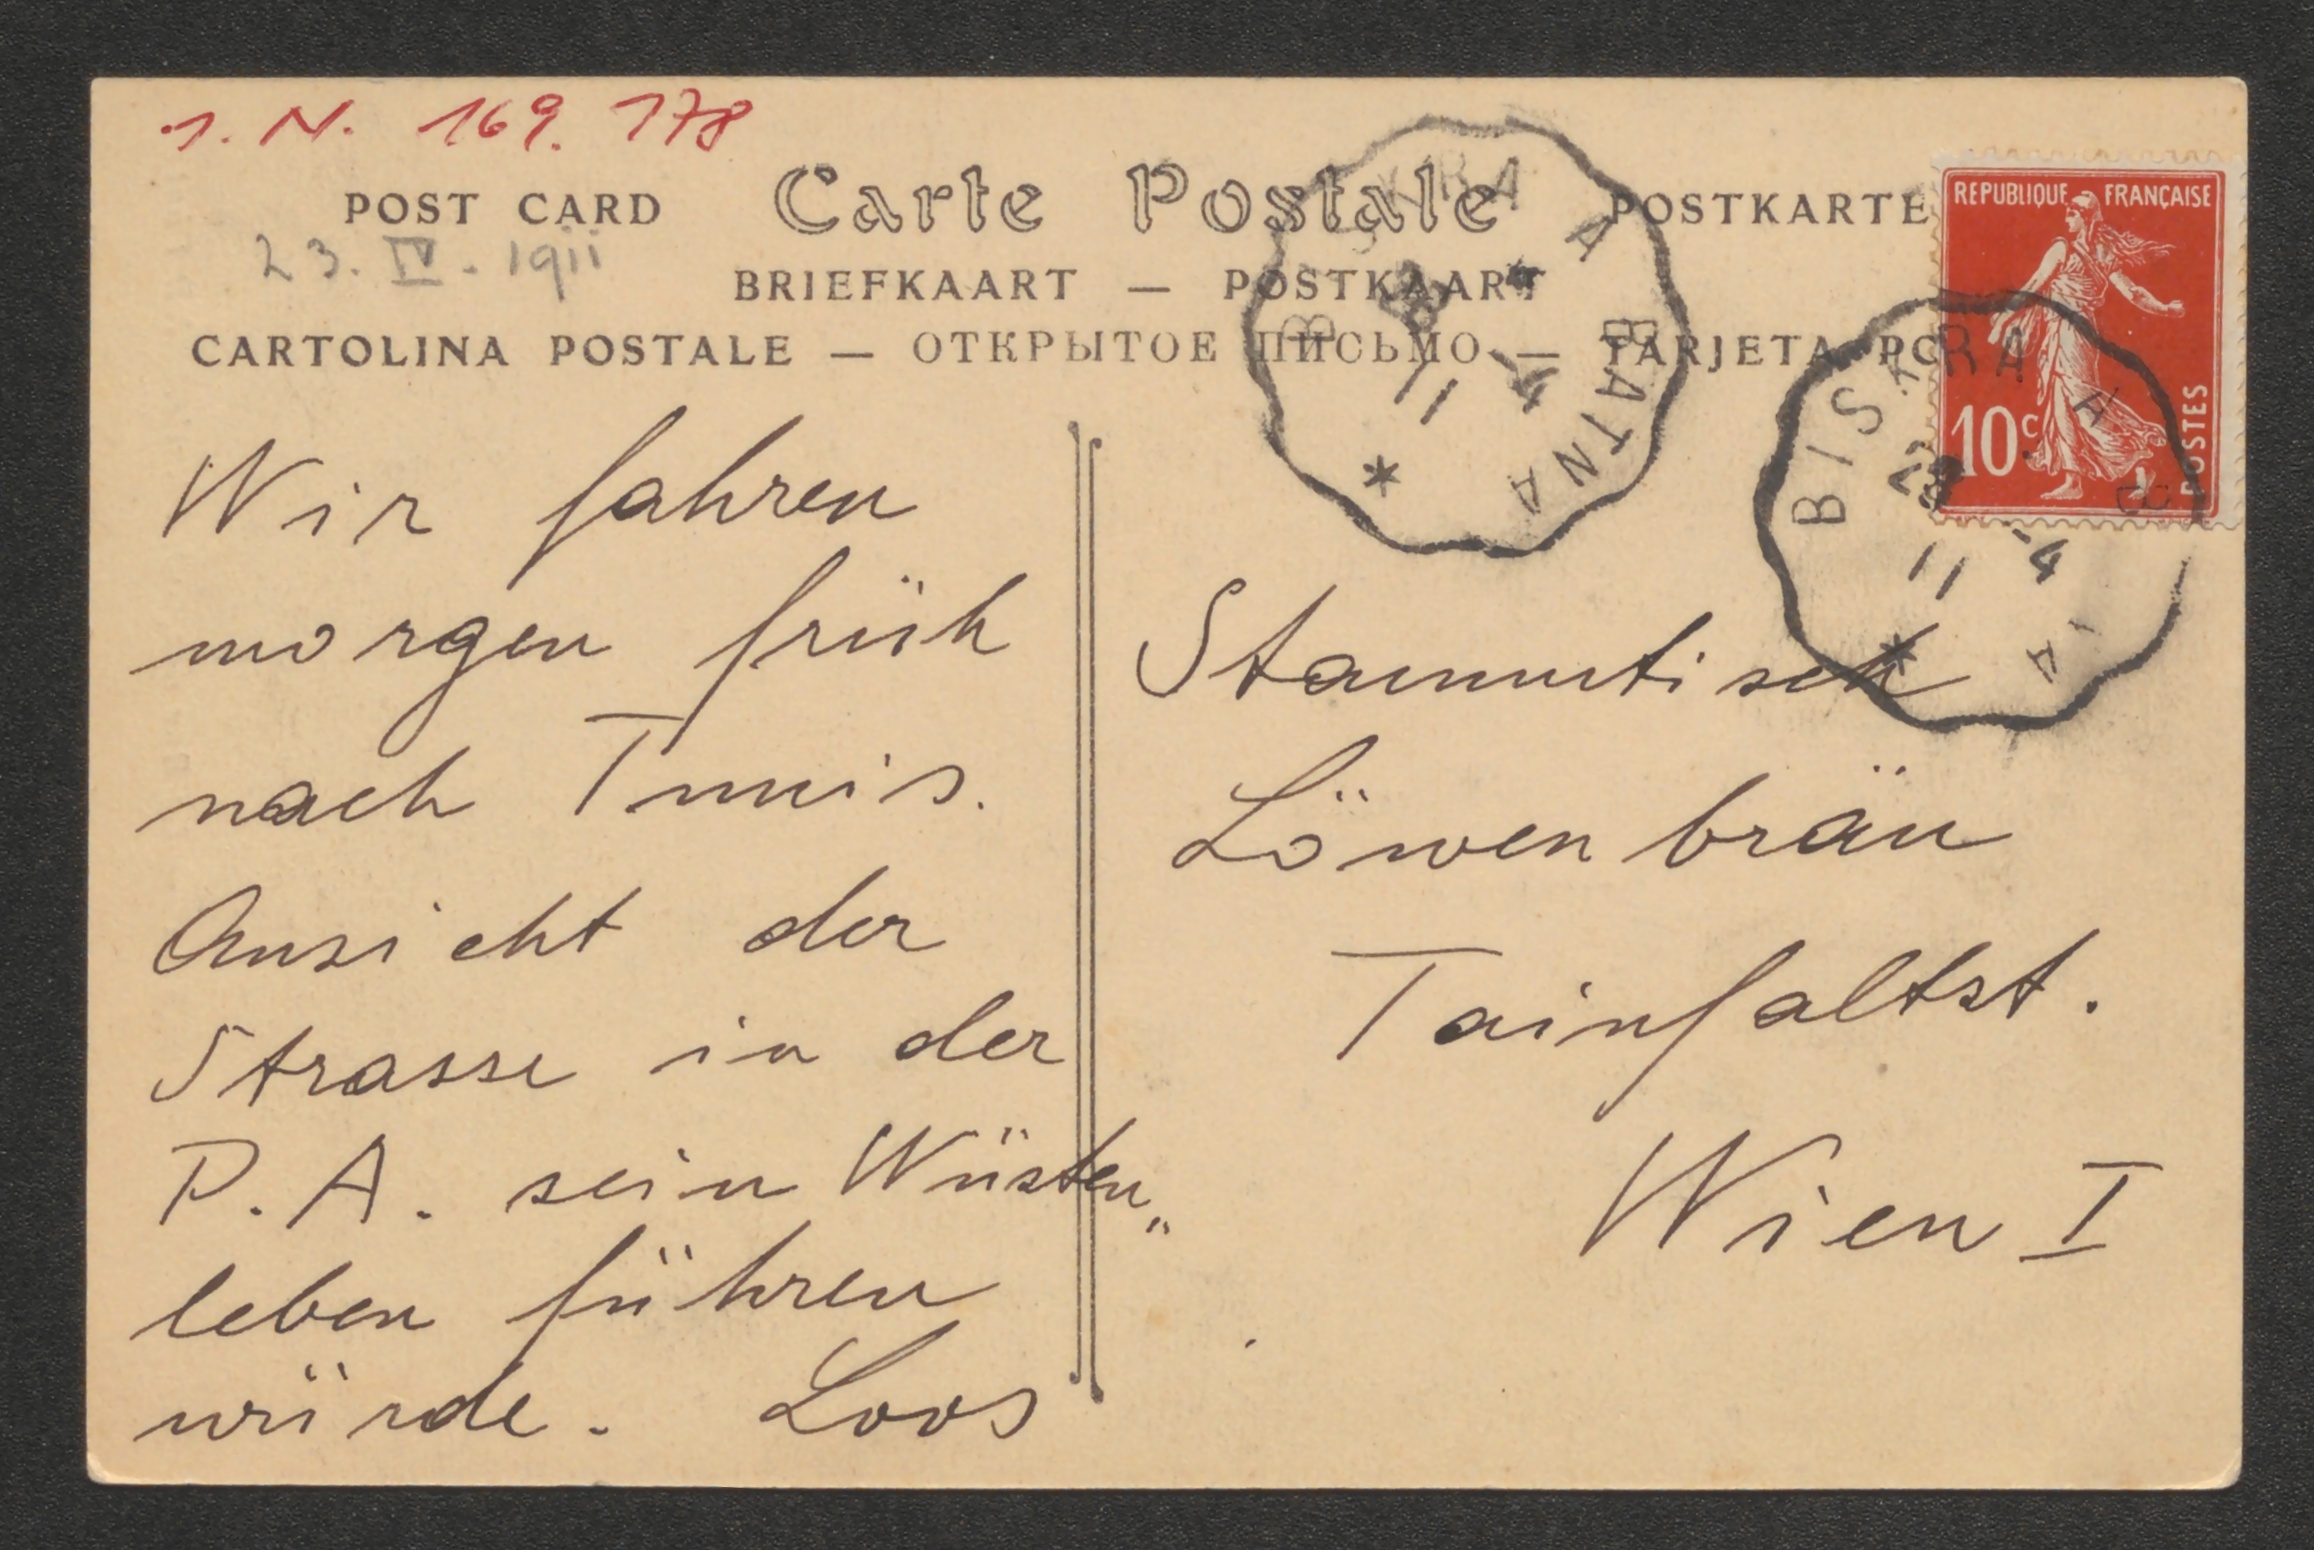 J. N. 169.178
POST CARD Carte Postale POSTKARTE
23. IV. 1911
BRIEFKAART — POSTKAART
CARTOLINA POSTALE — ОТКРЫТОЕ ПИСЬМО — TARJETA PO
REPUBLIQUE FRANÇAISE
10c POSTES
BISKRA A BATNA
23 -4
11
BISKRA A B A
23 -4
11
Wir fahren
morgen früh
nach Tunis.
Ansicht der
Strasse in der
P. A. sein Wüsten„
leben führen
würde. Loos
Stammtisch
Löwenbräu
Tainfaltst.
Wien I